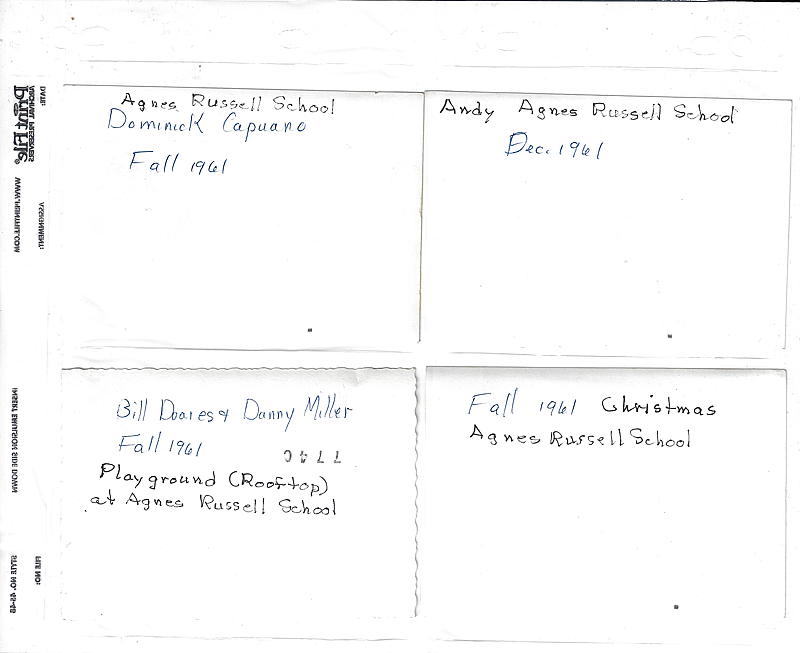 Agnes Russell School
Dominick Capuano
Fall 1961
Andy Agnes Russell School
Dec. 1961
Bill Doares & Danny Miller
Fall 1961
Playground (Rooftop)
at Agnes Russell School
Fall 1961 Christmas
Agnes Russell School
DATE:
ARCHIVAL PRESERVERS
Print File®
WWW.PRINTFILE.COM
ASSIGNMENT:
INSERT EMULSION SIDE DOWN
FILE NO:
STYLE NO. 45-4B